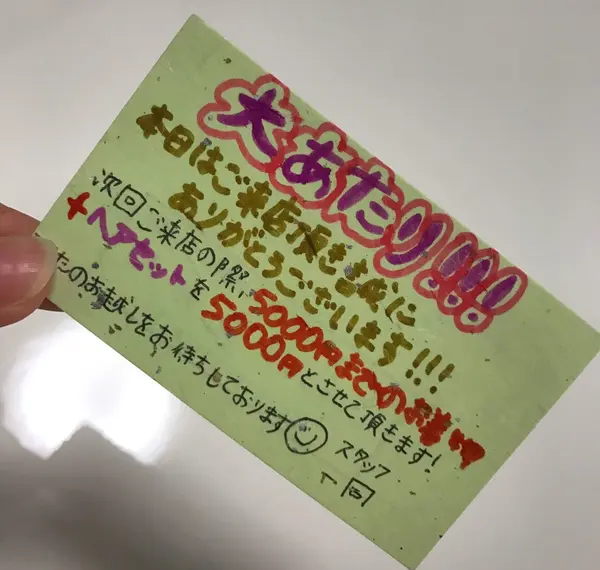 大あたり!!!
本日はご来店頂き誠に
ありがとうございます!!!
次回ご来店の際、5000円までのお
+ヘアセットを5000円とさせて頂きます!
たのお越しをお待ちしております☺ スタッフ
一同